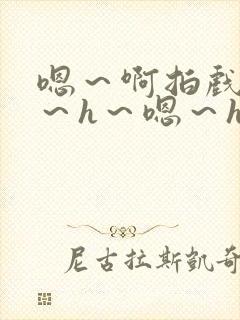 嗯～啊拍戏
～h～嗯～h
尼古拉斯凯奇